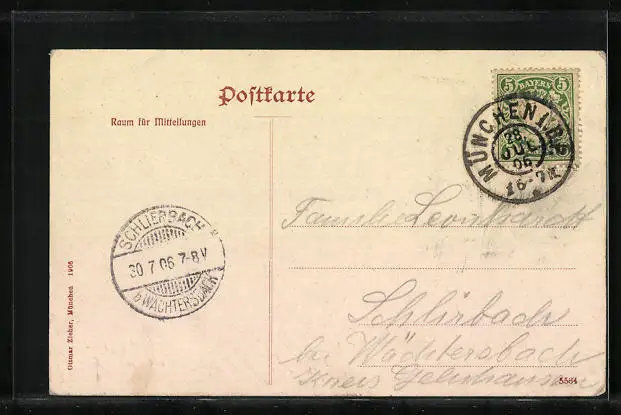 Postkarte
Raum für Mitteilungen
5 BAYERN 5
MÜNCHEN
29
JUL
06
SCHLIERBACH
30 7 06 7-8V
b WÄCHTERSBACH
Familie Leonhardt
Schlirbach
bei Wächtersbach
Kreis Gelnhausen
Ottmar Zieher, München 1906
5564